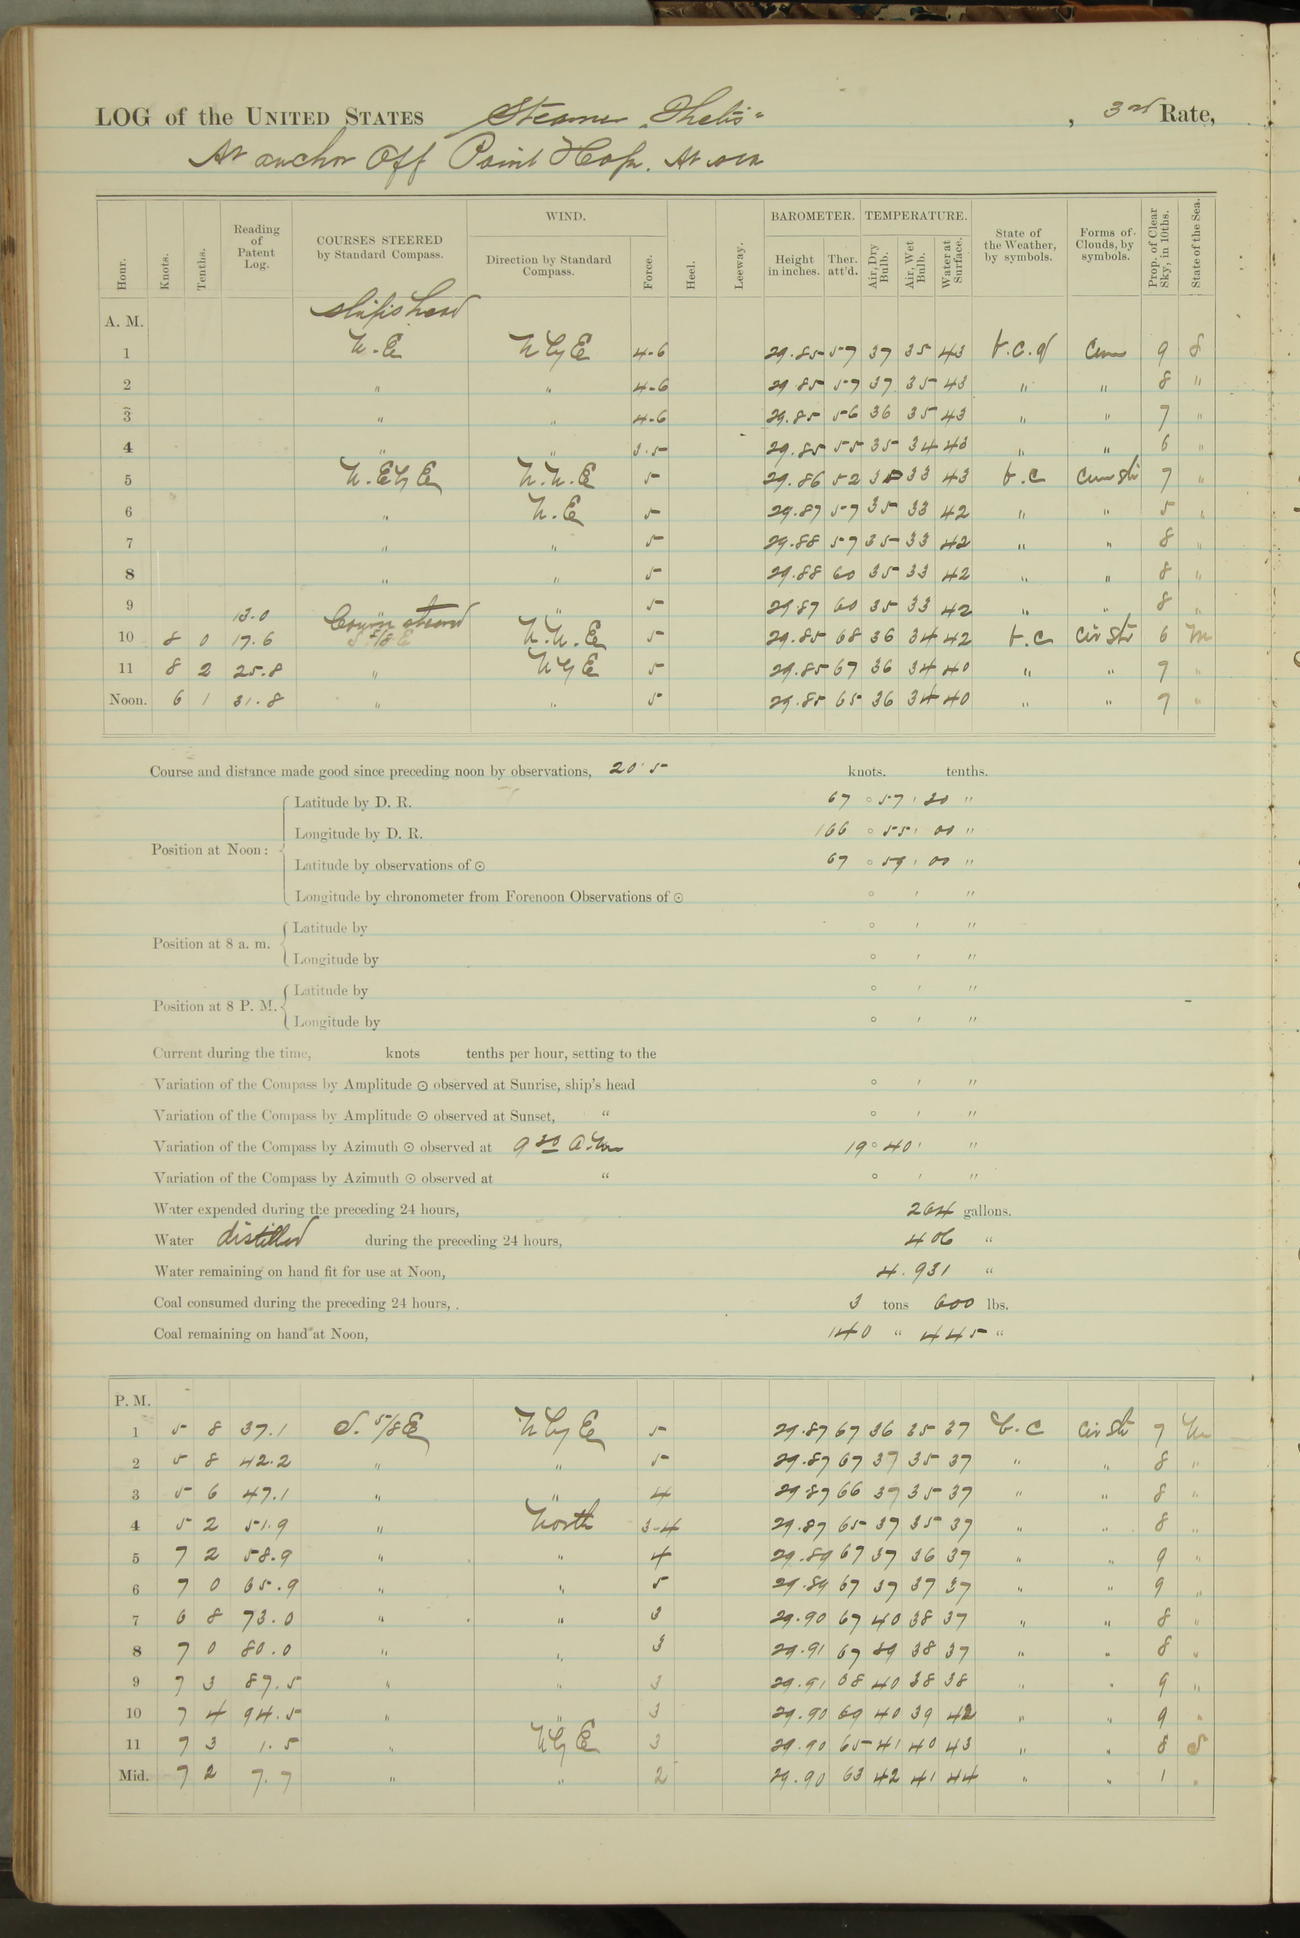 LOG of the UNITED STATES Steamer "Thetis" , 3rd Rate,
At anchor Off Point Hope. At sea
Hour. Knots. Tenths. Reading of Patent Log. COURSES STEERED by Standard Compass. WIND. Direction by Standard Compass. Force. Heel. Leeway. BAROMETER. Height in inches. Ther. att'd. TEMPERATURE. Air, Dry Bulb. Air, Wet Bulb. Water at Surface. State of the Weather, by symbols. Forms of Clouds, by symbols. Prop. of Clear Sky, in 10ths. State of the Sea.
A. M. ship's head
1 N.E NbyE 4-6 29.85 57 37 35 43 b.c.g Cum 9 S
2 " " 4-6 29.85 57 37 35 43 " " 8 "
3 " " 4-6 29.85 56 36 35 43 " " 7 "
4 " " 3.5 29.85 55 35 34 43 " " 6 "
5 N.EbyE N.N.E 5 29.86 52 33 43 b.c Cum Str 7 "
6 " N.E 5 29.87 57 35 33 42 " " 5 "
7 " " 5 29.88 57 35 33 42 " " 8 "
8 " " 5 29.88 60 35 33 42 " " 8 "
9 " " 5 29.87 60 35 33 42 " " 8 "
13.0 Course steered
10 8 0 17.6 S 5/8 E N.N.E 5 29.85 68 36 34 42 b.c Cir Str 6 M
11 8 2 25.8 " NbyE 5 29.85 67 36 34 40 " " 7 "
Noon. 6 1 31.8 " " 5 29.85 65 36 34 40 " " 7 "
Course and distance made good since preceding noon by observations, 20.5 knots. tenths.
Position at Noon:
Latitude by D. R. 67 ° 57 ' 30 "
Longitude by D. R. 166 ° 55 ' 00 "
Latitude by observations of ☉ 67 ° 59 ' 00 "
Longitude by chronometer from Forenoon Observations of ☉ ° ' "
Position at 8 a. m.
Latitude by ° ' "
Longitude by ° ' "
Position at 8 P. M.
Latitude by ° ' "
Longitude by ° ' "
Current during the time, knots tenths per hour, setting to the
Variation of the Compass by Amplitude ☉ observed at Sunrise, ship's head ° ' "
Variation of the Compass by Amplitude ☉ observed at Sunset, " ° ' "
Variation of the Compass by Azimuth ☉ observed at 9 30 A.M 19 ° 40 ' "
Variation of the Compass by Azimuth ☉ observed at " ° ' "
Water expended during the preceding 24 hours, 264 gallons.
Water distilled during the preceding 24 hours, 406 "
Water remaining on hand fit for use at Noon, 4.931 "
Coal consumed during the preceding 24 hours, 3 tons 600 lbs.
Coal remaining on hand at Noon, 140 " 445 "
P. M.
1 5 8 37.1 S. 5/8 E NbyE 5 29.87 67 36 35 37 b.c Cir Str 7 M
2 5 8 42.2 " " 5 29.87 67 37 35 37 " " 8 "
3 5 6 47.1 " " 4 29.87 66 37 35 37 " " 8 "
4 5 2 51.9 " North 3-4 29.87 65 37 35 37 " " 8 "
5 7 2 58.9 " " 4 29.89 67 37 36 37 " " 9 "
6 7 0 65.9 " " 5 29.89 67 37 37 37 " " 9 "
7 6 8 73.0 " " 3 29.90 67 40 38 37 " " 8 "
8 7 0 80.0 " " 3 29.91 67 39 38 37 " " 8 "
9 7 3 87.5 " " 3 29.91 68 40 38 38 " " 9 "
10 7 4 94.5 " " 3 29.90 69 40 39 42 " " 9 "
11 7 3 1.5 " NbyE 3 29.90 65 41 40 43 " " 8 S
Mid. 7 2 7.7 " " 2 29.90 63 42 41 44 " " 1 "